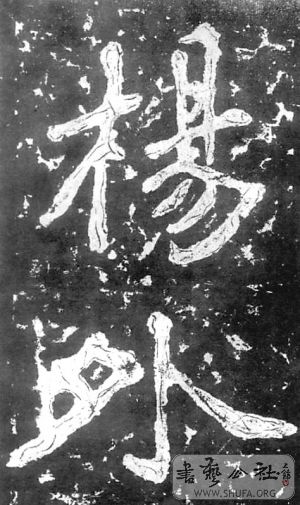 楊
外
書藝公社
WWW.SHUFA.ORG